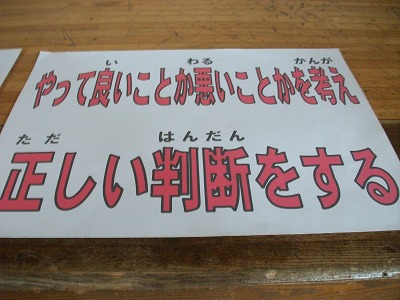 い わる かんが
やって良いことか悪いことかを考え
ただ はんだん
正しい判断をする